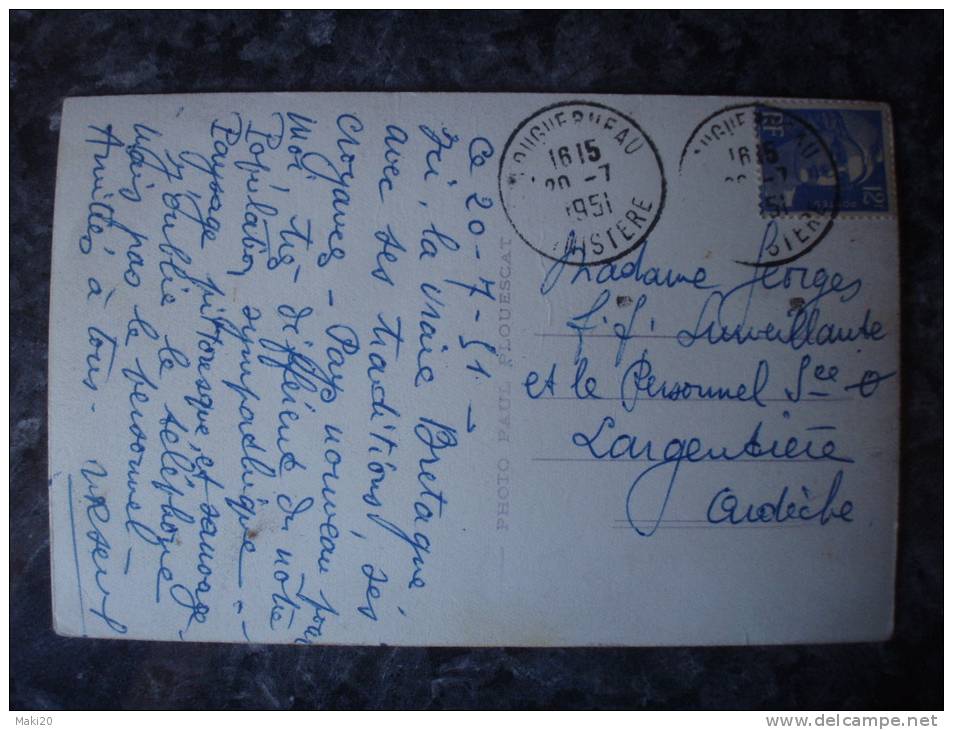 Ce 20-7-51 -
Ici, la vraie Bretagne
avec ses traditions, ses
croyances - Pays nouveau pour
moi très différent du nôtre
Population sympathique -
Paysage pittoresque et sauvage
J'oublie le téléphone
Mais pas le personnel -
Amitiés à tous -
PHOTO PAUL PLOUESCAT
PLOUGUERNEAU
16 15
20 - 7
1951
FINISTERE
GUERNEAU
16 15
20 - 7
51
STERE
RF
12F
POSTES
Madame Georges
Surveillante
et le Personnel Sce
Largentière
Ardèche
Maki20
www.delcampe.net